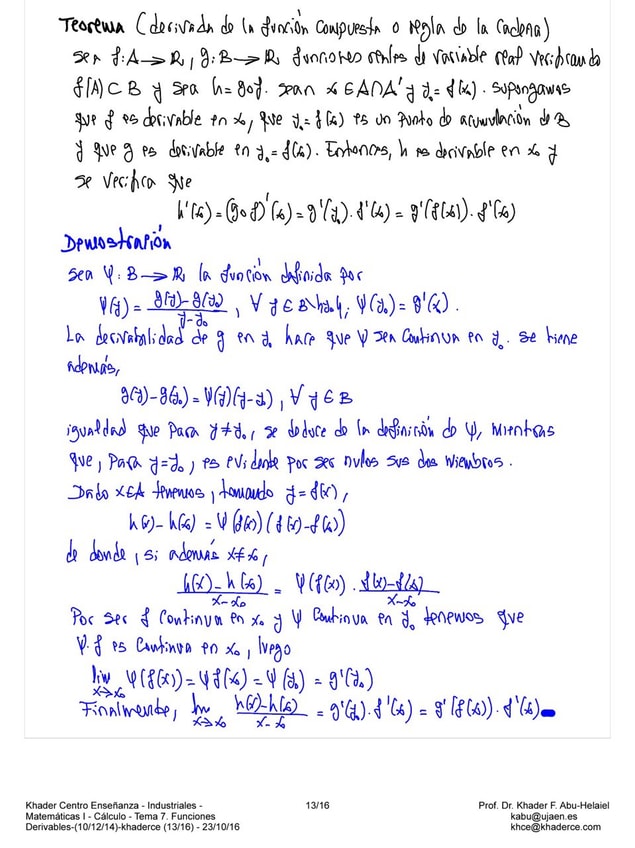 Teorema (derivada de la función compuesta o regla de la cadena)
Sea f: A → R, g: B → R funciones reales de variable real verificando
f(A) ⊂ B y sea h = g∘f. Sean x₀ ∈ A∩A' y y₀ = f(x₀). Supongamos
que f es derivable en x₀, que y₀ = f(x₀) es un punto de acumulación de B
y que g es derivable en y₀ = f(x₀). Entonces, h es derivable en x₀ y
se verifica que
h'(x₀) = (g∘f)'(x₀) = g'(y₀). f'(x₀) = g'(f(x₀)). f'(x₀)
Demostración
Sea Ψ: B → R la función definida por
Ψ(y) = g(y) - g(y₀) / y - y₀ , ∀ y ∈ B\{y₀}; Ψ(y₀) = g'(x).
La derivabilidad de g en y₀ hace que Ψ sea continua en y₀. Se tiene
además,
g(y) - g(y₀) = Ψ(y)(y - y₀), ∀ y ∈ B
igualdad que para y ≠ y₀, se deduce de la definición de Ψ, mientras
que, para y = y₀, es evidente por ser nulos sus dos miembros.
Dado x ∈ A tenemos, tomando y = f(x),
h(x) - h(x₀) = Ψ(f(x))(f(x) - f(x₀))
de donde, si además x ≠ x₀,
h(x) - h(x₀) / x - x₀ = Ψ(f(x)) . f(x) - f(x₀) / x - x₀
Por ser f continua en x₀ y Ψ continua en y₀ tenemos que
Ψ.f es continua en x₀, luego
lim x→x₀ Ψ(f(x)) = Ψf(x₀) = Ψ(y₀) = g'(y₀)
Finalmente, lim x→x₀ h(x) - h(x₀) / x - x₀ = g'(y₀). f'(x₀) = g'(f(x₀)). f'(x₀)
Khader Centro Enseñanza - Industriales - 13/16 Prof. Dr. Khader F. Abu-Helaiel
Matemáticas I - Cálculo - Tema 7. Funciones kabu@ujaen.es
Derivables-(10/12/14)-khaderce (13/16) - 23/10/16 khce@khaderce.com